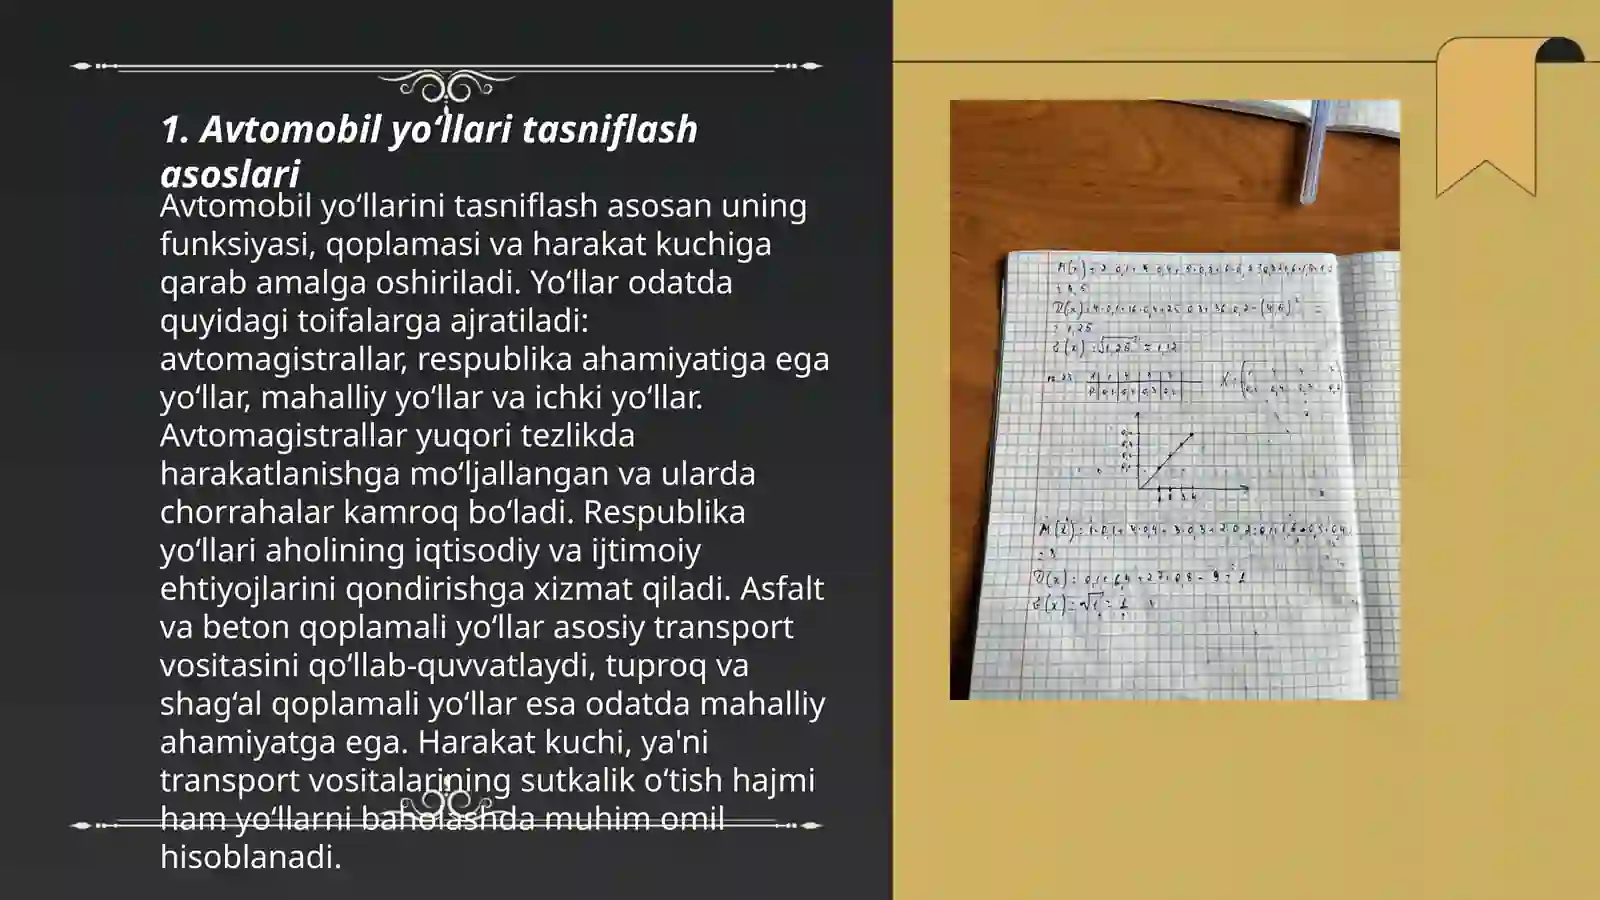 1. Avtomobil yo‘llari tasniflash
asoslari
Avtomobil yo‘llarini tasniflash asosan uning
funksiyasi, qoplamasi va harakat kuchiga
qarab amalga oshiriladi. Yo‘llar odatda
quyidagi toifalarga ajratiladi:
avtomagistrallar, respublika ahamiyatiga ega
yo‘llar, mahalliy yo‘llar va ichki yo‘llar.
Avtomagistrallar yuqori tezlikda
harakatlanishga mo‘ljallangan va ularda
chorrahalar kamroq bo‘ladi. Respublika
yo‘llari aholining iqtisodiy va ijtimoiy
ehtiyojlarini qondirishga xizmat qiladi. Asfalt
va beton qoplamali yo‘llar asosiy transport
vositasini qo‘llab-quvvatlaydi, tuproq va
shag‘al qoplamali yo‘llar esa odatda mahalliy
ahamiyatga ega. Harakat kuchi, ya'ni
transport vositalarining sutkalik o‘tish hajmi
ham yo‘llarni baholashda muhim omil
hisoblanadi.
= 1,25